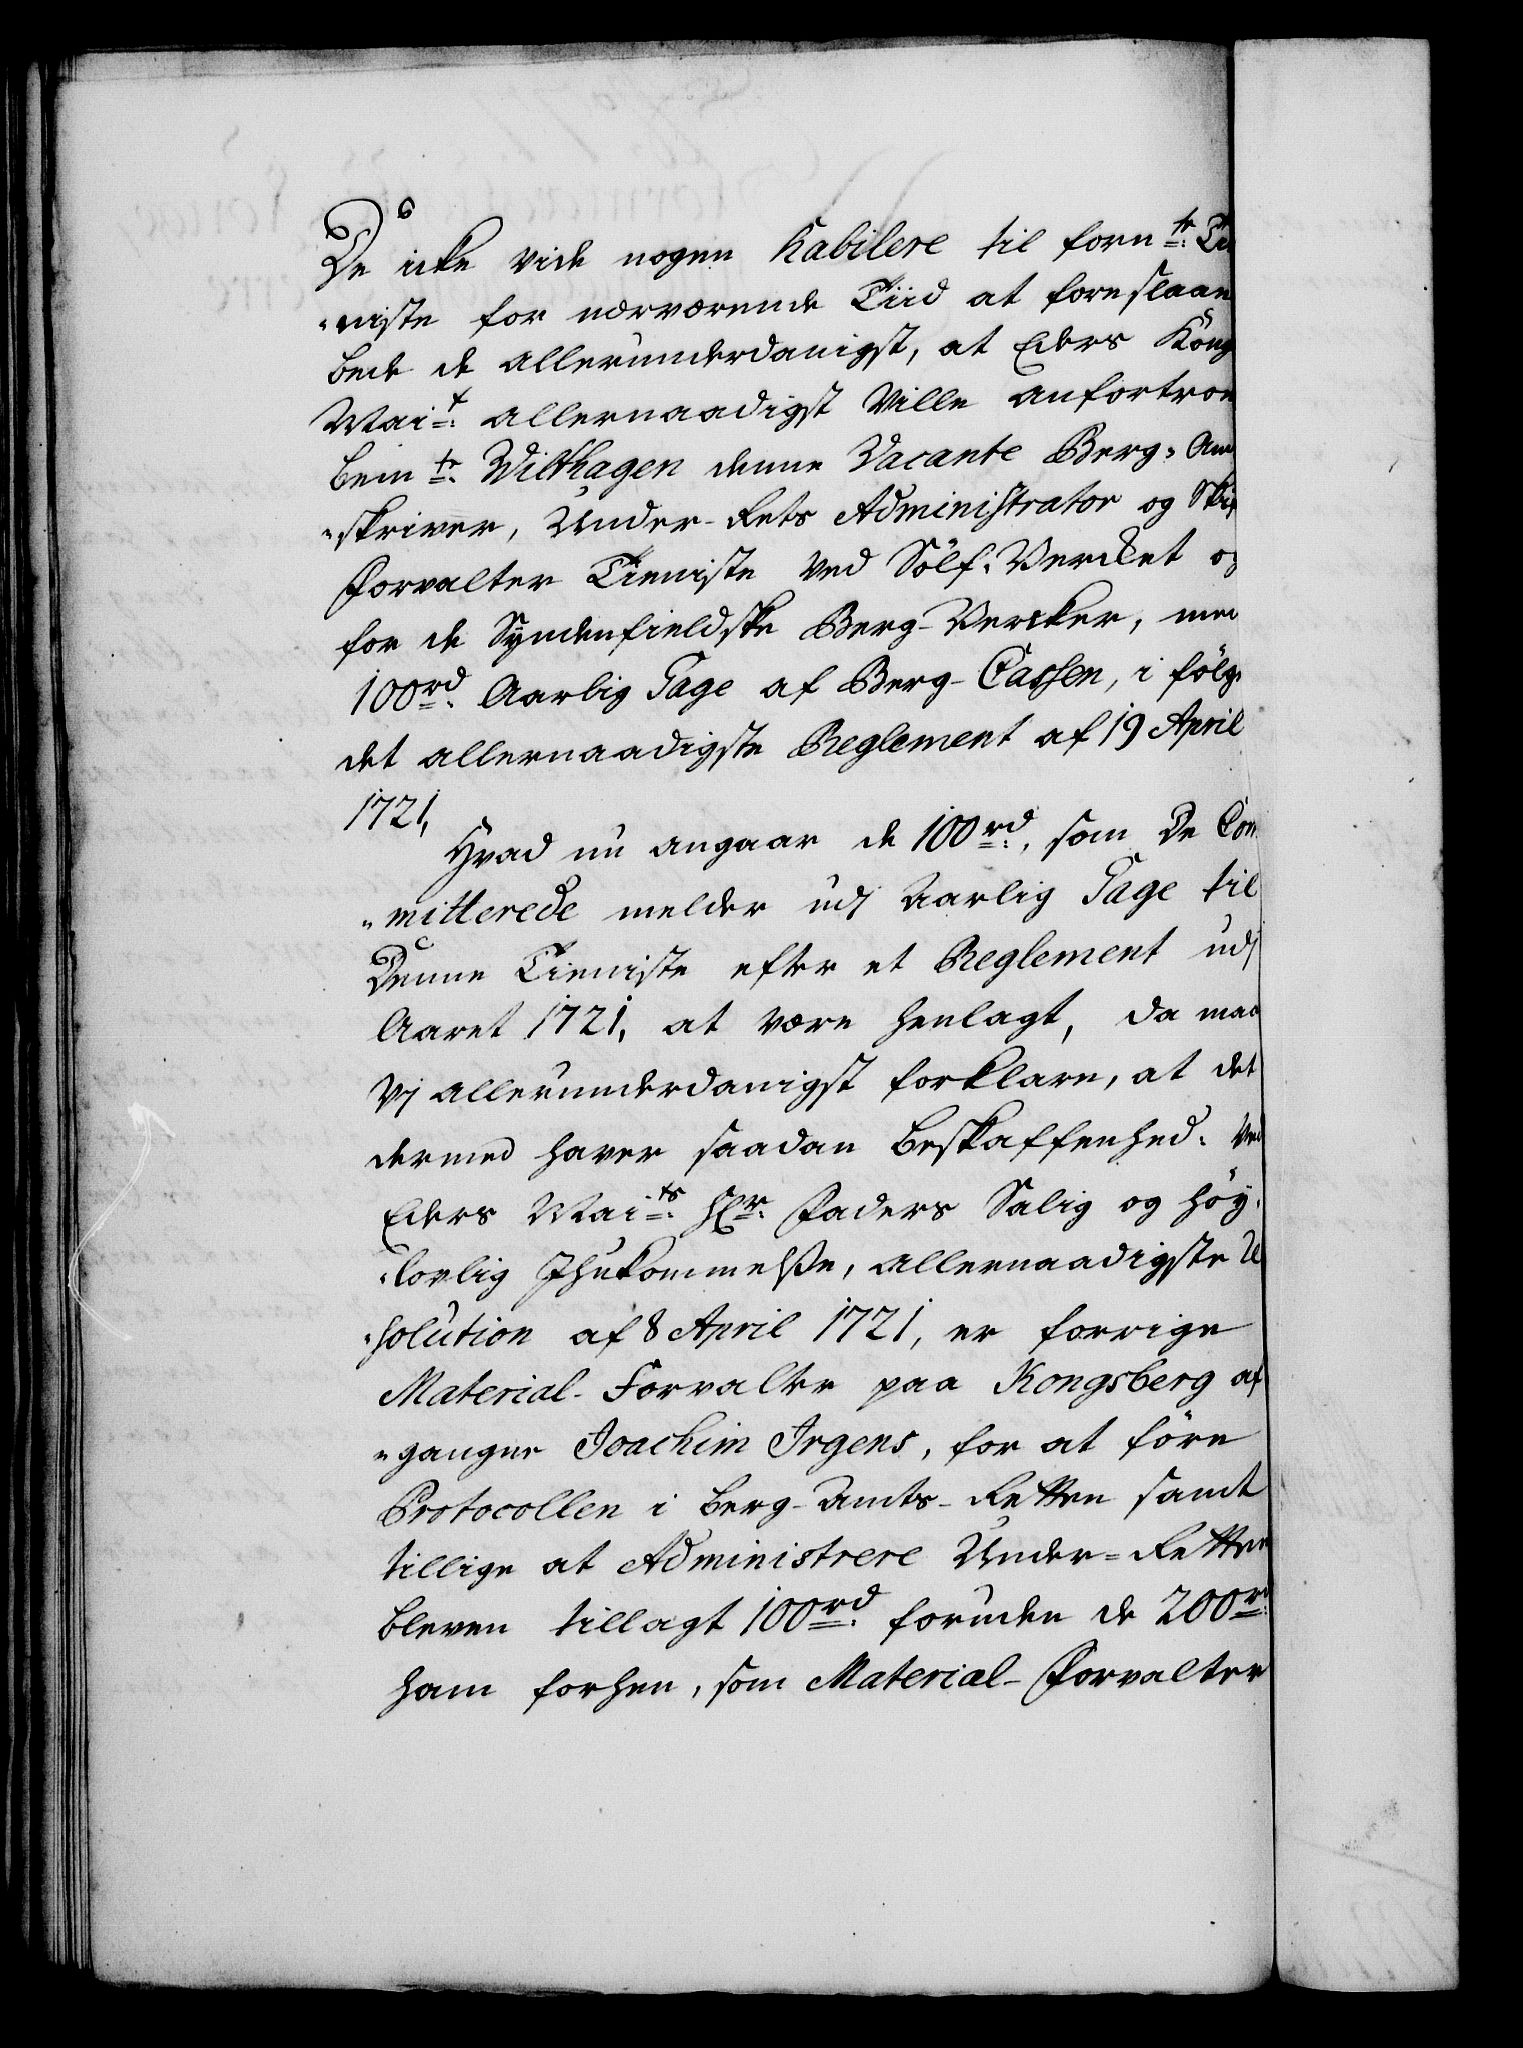 De icke vide nogen habilere til forn.te Tie
niste for nærværende Tiid at foreslaae
bede de allerunderdanigst, at Eders Kong
Mai.t allernaadigst Ville anfortroe
bem.te Wilthagen denne Vacante Berg-Am
skriver, Under-Rets Administrator og Skif
forvalter Tieniste ved Sölf-Vercket og
for de Syndenfieldske Berg-Vercker, med
100 rd. Aarlig Gage af Berg-Cassen, i følge
det allernaadigste Reglement af 19 April
1721,
Hvad nu angaar de 100 rd., som De Com
mitterede melder udj Aarlig Gage til
Denne Tieniste efter et Reglement udj
Aaret 1721, at være henlagt, da maa
Vj allerunderdanigst forklare, at det
dermed haver saadan beskaffenhed: Ved
Eders Mai.ts Hr. Faders Salig og höy-
lovlig Ihukommelse, allernaadigste Re
solution af 8 April 1721, er forrige
Material-Forvalter paa Kongsberg af
gangne Joachim Irgens, for at före
Protocollen i Berg-Amts-Retten samt
tillige at Administrere Under-Retten
bleven tillagt 100 rd. foruden de 200 rd.
ham forhen, som Material-Forvalter